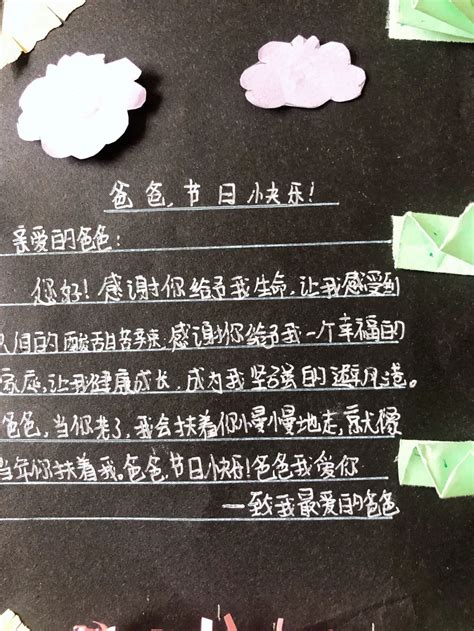 爸爸,节日快乐!
亲爱的爸爸:
您好!感谢你给予我生命,让我感受到
人间的酸甜苦辣.感谢你给予我一个幸福的
家庭,让我健康成长,成为我坚强的避风港。
爸爸,当你老了,我会扶着你慢慢地走,就像
当年你扶着我。爸爸,节日快乐!爸爸我爱你
—致我最爱的爸爸